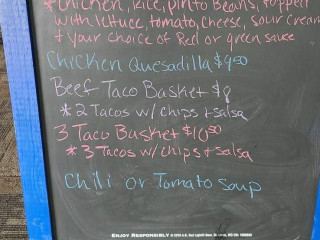 *Chicken, Rice, Pinto Beans, topped
with lettuce, tomato, cheese, sour cream
& your choice of Red or green sauce
Chicken Quesadilla $9.00
Beef Taco Basket $8
*2 Tacos w/ chips & salsa
3 Taco Basket $10.50
*3 Tacos w/ chips & salsa
Chili or Tomato Soup
ENJOY RESPONSIBLY